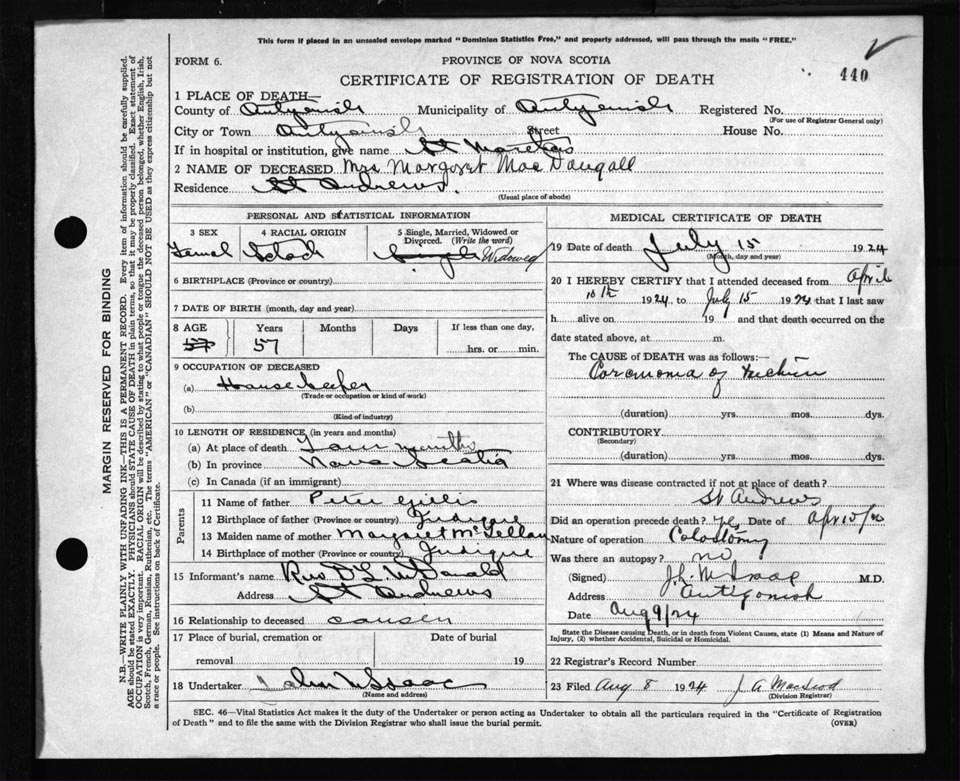 This form if placed in an unsealed envelope marked "Dominion Statistics Free," and properly addressed, will pass through the mails "FREE."
FORM 6. PROVINCE OF NOVA SCOTIA
CERTIFICATE OF REGISTRATION OF DEATH 440
1 PLACE OF DEATH—
County of Antigonish Municipality of Antigonish Registered No.
(For use of Registrar General only)
City or Town Antigonish Street House No.
If in hospital or institution, give name St Marthas
2 NAME OF DECEASED Mrs Margaret MacDougall
Residence St Andrews.
(Usual place of abode)
PERSONAL AND STATISTICAL INFORMATION
3 SEX 4 RACIAL ORIGIN 5 Single, Married, Widowed or Divorced. (Write the word)
Femal Scotch Single Widowed
6 BIRTHPLACE (Province or country)
7 DATE OF BIRTH (month, day and year)
8 AGE Years Months Days If less than one day,
57 57 hrs. or min.
9 OCCUPATION OF DECEASED
(a) Housekeeper
(Trade or occupation or kind of work)
(b)
(Kind of industry)
10 LENGTH OF RESIDENCE (in years and months)
(a) At place of death Four months
(b) In province Nova Scotia
(c) In Canada (if an immigrant)
Parents
11 Name of father Peter Gillis
12 Birthplace of father (Province or country) Judique
13 Maiden name of mother Margaret McLellan
14 Birthplace of mother (Province or country) Judique
15 Informant's name Rev D L McDonald
Address St Andrews
16 Relationship to deceased causen
17 Place of burial, cremation or Date of burial
removal 19
18 Undertaker John McIsaac
(Name and address)
MEDICAL CERTIFICATE OF DEATH
19 Date of death July 15 1924
(Month, day and year)
20 I HEREBY CERTIFY that I attended deceased from April
10th 1924 to July 15 1924 that I last saw
h alive on 19 and that death occurred on the
date stated above, at m.
The CAUSE of DEATH was as follows:—
Carcinoma of rectum
(duration) yrs. mos. dys.
CONTRIBUTORY
(Secondary)
(duration) yrs. mos. dys.
21 Where was disease contracted if not at place of death?
St Andrews
Did an operation precede death? yes Date of Apr 15/
Nature of operation Colostomy
Was there an autopsy? no
(Signed) J.L. McIsaac M.D.
Address Antigonish
Date Aug 9/24
State the Disease causing Death, or in death from Violent Causes, state (1) Means and Nature of Injury, (2) whether Accidental, Suicidal or Homicidal.
22 Registrar's Record Number
23 Filed Aug 8 1924 J A Macleod
(Division Registrar)
SEC. 46—Vital Statistics Act makes it the duty of the Undertaker or person acting as Undertaker to obtain all the particulars required in the "Certificate of Registration
of Death" and to file the same with the Division Registrar who shall issue the burial permit. (OVER)
MARGIN RESERVED FOR BINDING
N.B.—WRITE PLAINLY WITH UNFADING INK—THIS IS A PERMANENT RECORD. Every item of information should be carefully supplied.
AGE should be stated EXACTLY. PHYSICIANS should STATE CAUSE OF DEATH in plain terms, so that it may be properly classified. Exact statement of
OCCUPATION is very important. RACIAL ORIGIN will be described by stating to what people or tongue the deceased person belonged, whether English, Irish,
Scotch, French, German, Russian, Ruthenian, etc. The terms "AMERICAN" or "CANADIAN" SHOULD NOT BE USED as they express citizenship but not
a race or people. See instructions on back of Certificate.